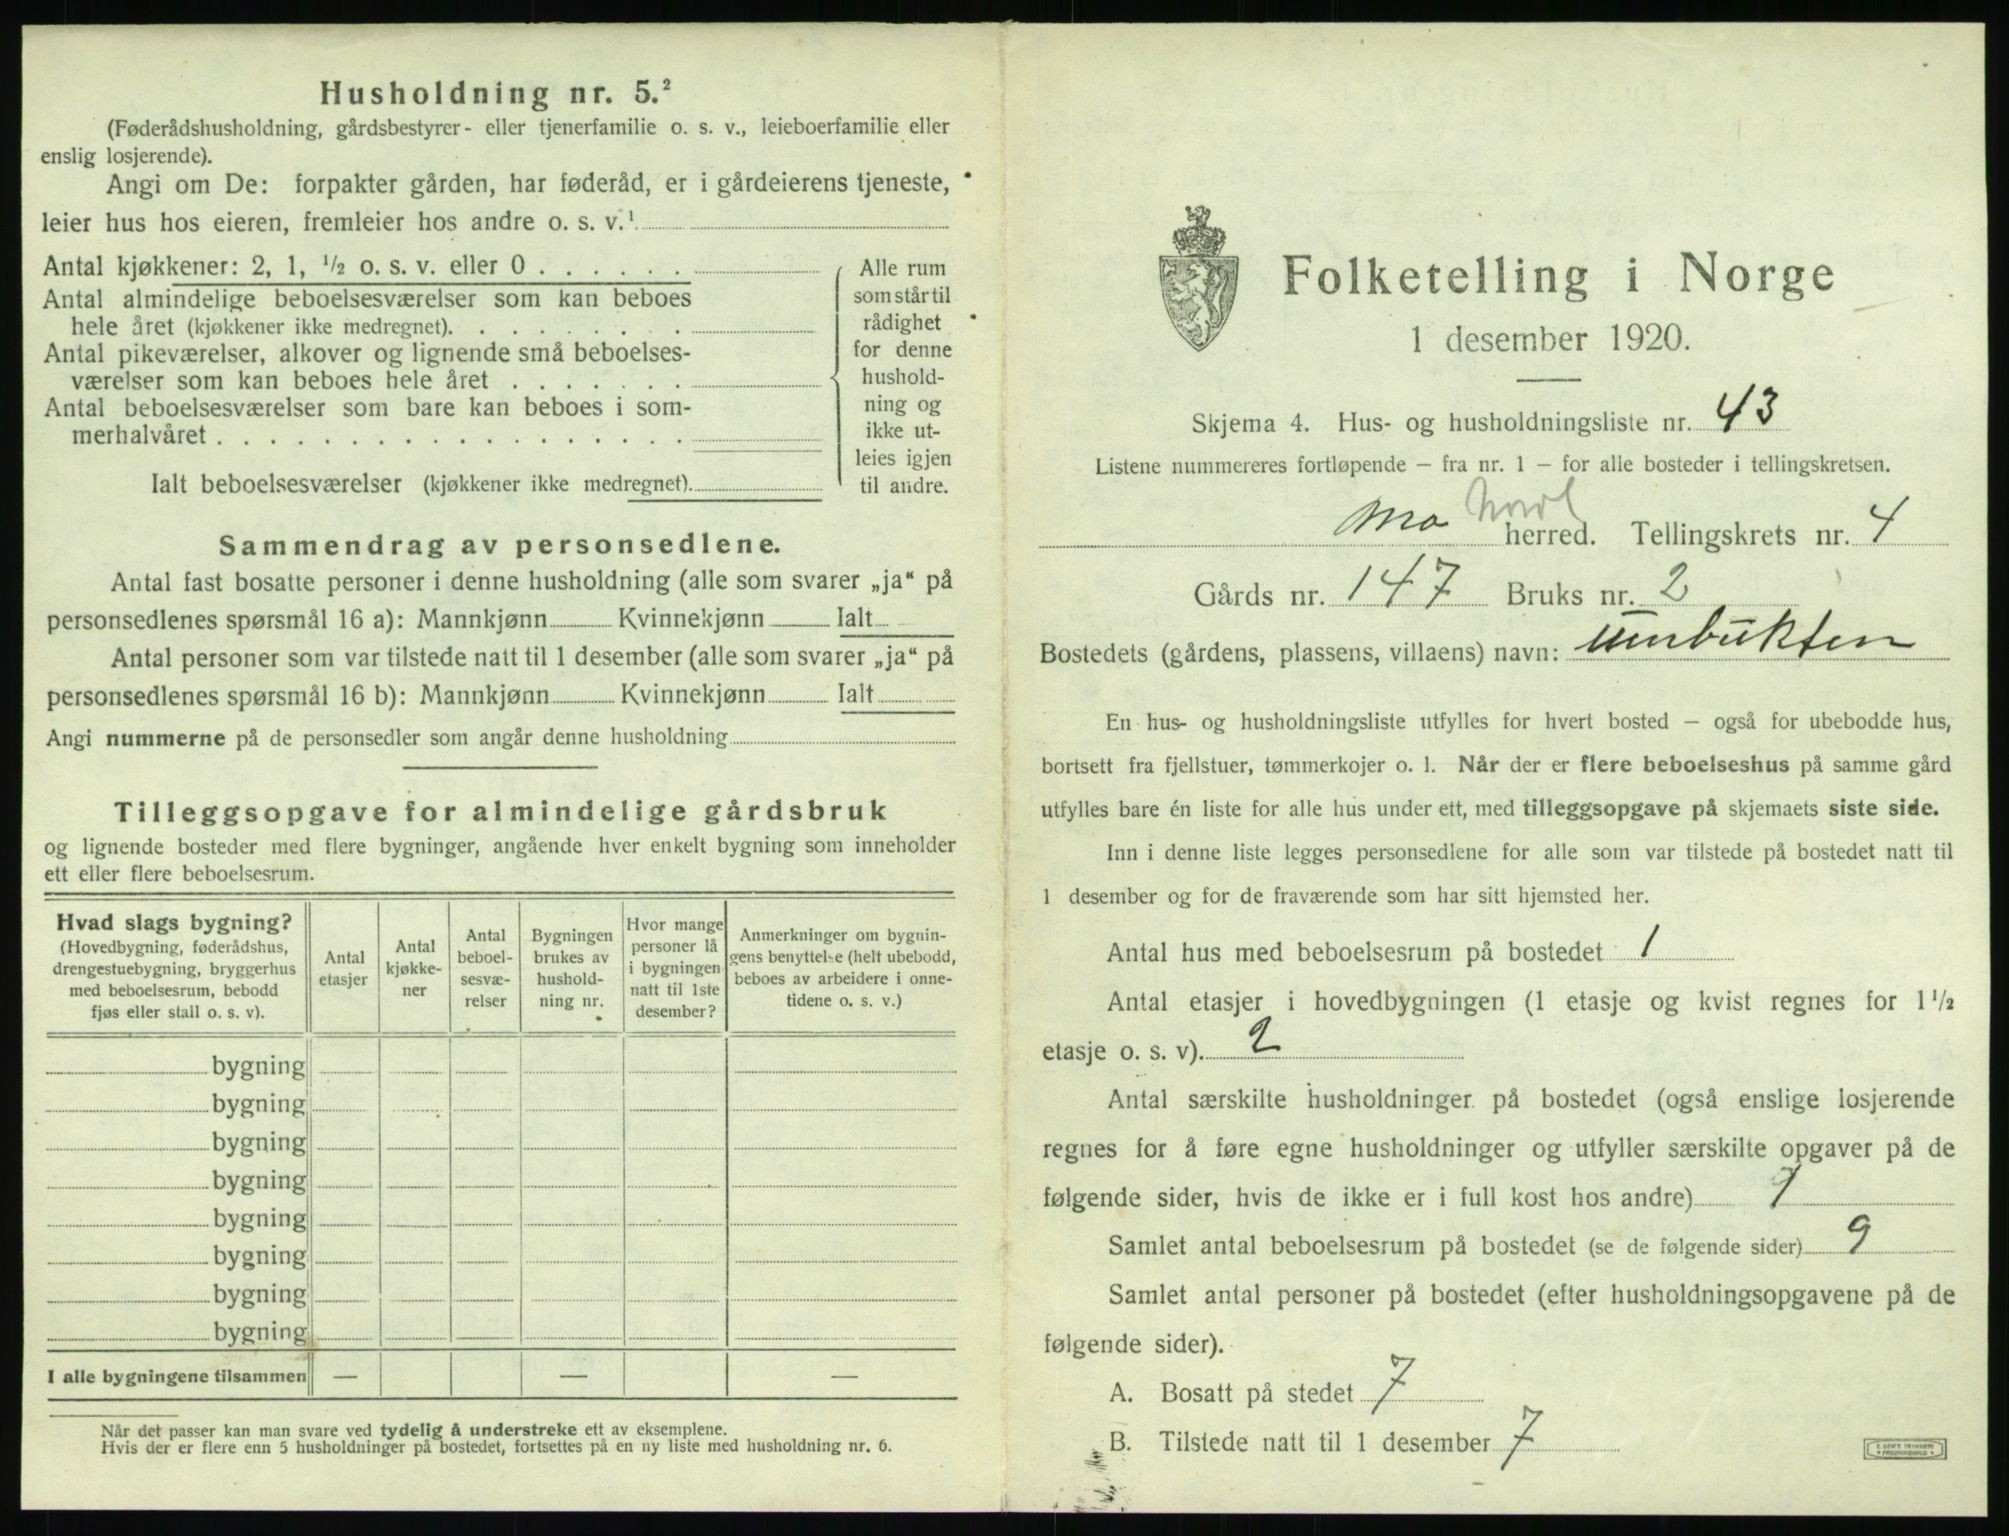 Husholdning nr. 5.²
(Føderådshusholdning, gårdsbestyrer- eller tjenerfamilie o. s. v., leieboerfamilie eller
enslig losjerende).
Angi om De: forpakter gården, har føderåd, er i gårdeierens tjeneste,
leier hus hos eieren, fremleier hos andre o. s. v.¹
Antal kjøkkener: 2, 1, ½ o. s. v. eller 0 . . . . . .
Antal almindelige beboelsesværelser som kan beboes
hele året (kjøkkener ikke medregnet). . . . . . . . .
Antal pikeværelser, alkover og lignende små beboelses-
værelser som kan beboes hele året . . . . . . .
Antal beboelsesværelser som bare kan beboes i som-
merhalvåret . . . . . . . . . . . . . . . . . .
Ialt beboelsesværelser (kjøkkener ikke medregnet).
Alle rum
som står til
rådighet
for denne
hushold-
ning og
ikke ut-
leies igjen
til andre.
Sammendrag av personsedlene.
Antal fast bosatte personer i denne husholdning (alle som svarer „ja“ på
personsedlenes spørsmål 16 a): Mannkjønn Kvinnekjønn Ialt
Antal personer som var tilstede natt til 1 desember (alle som svarer „ja“ på
personsedlenes spørsmål 16 b): Mannkjønn Kvinnekjønn Ialt
Angi nummerne på de personsedler som angår denne husholdning
Tilleggsopgave for almindelige gårdsbruk
og lignende bosteder med flere bygninger, angående hver enkelt bygning som inneholder
ett eller flere beboelsesrum.
Hvad slags bygning?
(Hovedbygning, føderådshus,
drengestuebygning, bryggerhus
med beboelsesrum, bebodd
fjøs eller stall o. s. v).
Antal
etasjer
Antal
kjøkke-
ner
Antal
beboel-
sesvæ-
relser
Bygningen
brukes av
hushold-
ning nr.
Hvor mange
personer lå
i bygningen
natt til 1ste
desember?
Anmerkninger om bygnin-
gens benyttelse (helt ubebodd,
beboes av arbeidere i onne-
tidene o. s. v.)
bygning
bygning
bygning
bygning
bygning
bygning
bygning
bygning
I alle bygningene tilsammen — — —
Når det passer kan man svare ved tydelig å understreke ett av eksemplene.
Hvis der er flere enn 5 husholdninger på bostedet, fortsettes på en ny liste med husholdning nr. 6.
Folketelling i Norge
1 desember 1920.
Skjema 4. Hus- og husholdningsliste nr. 43
Listene nummereres fortløpende – fra nr. 1 – for alle bosteder i tellingskretsen.
Nordl
Mo herred. Tellingskrets nr. 4
Gårds nr. 147 Bruks nr. 2
Bostedets (gårdens, plassens, villaens) navn: Umbukten
En hus- og husholdningsliste utfylles for hvert bosted – også for ubebodde hus,
bortsett fra fjellstuer, tømmerkojer o. l. Når der er flere beboelseshus på samme gård
utfylles bare én liste for alle hus under ett, med tilleggsopgave på skjemaets siste side.
Inn i denne liste legges personsedlene for alle som var tilstede på bostedet natt til
1 desember og for de fraværende som har sitt hjemsted her.
Antal hus med beboelsesrum på bostedet 1
Antal etasjer i hovedbygningen (1 etasje og kvist regnes for 1½
etasje o. s. v). 2
Antal særskilte husholdninger på bostedet (også enslige losjerende
regnes for å føre egne husholdninger og utfyller særskilte opgaver på de
følgende sider, hvis de ikke er i full kost hos andre) 1
Samlet antal beboelsesrum på bostedet (se de følgende sider) 9
Samlet antal personer på bostedet (efter husholdningsopgavene på de
følgende sider).
A. Bosatt på stedet 7
B. Tilstede natt til 1 desember 7